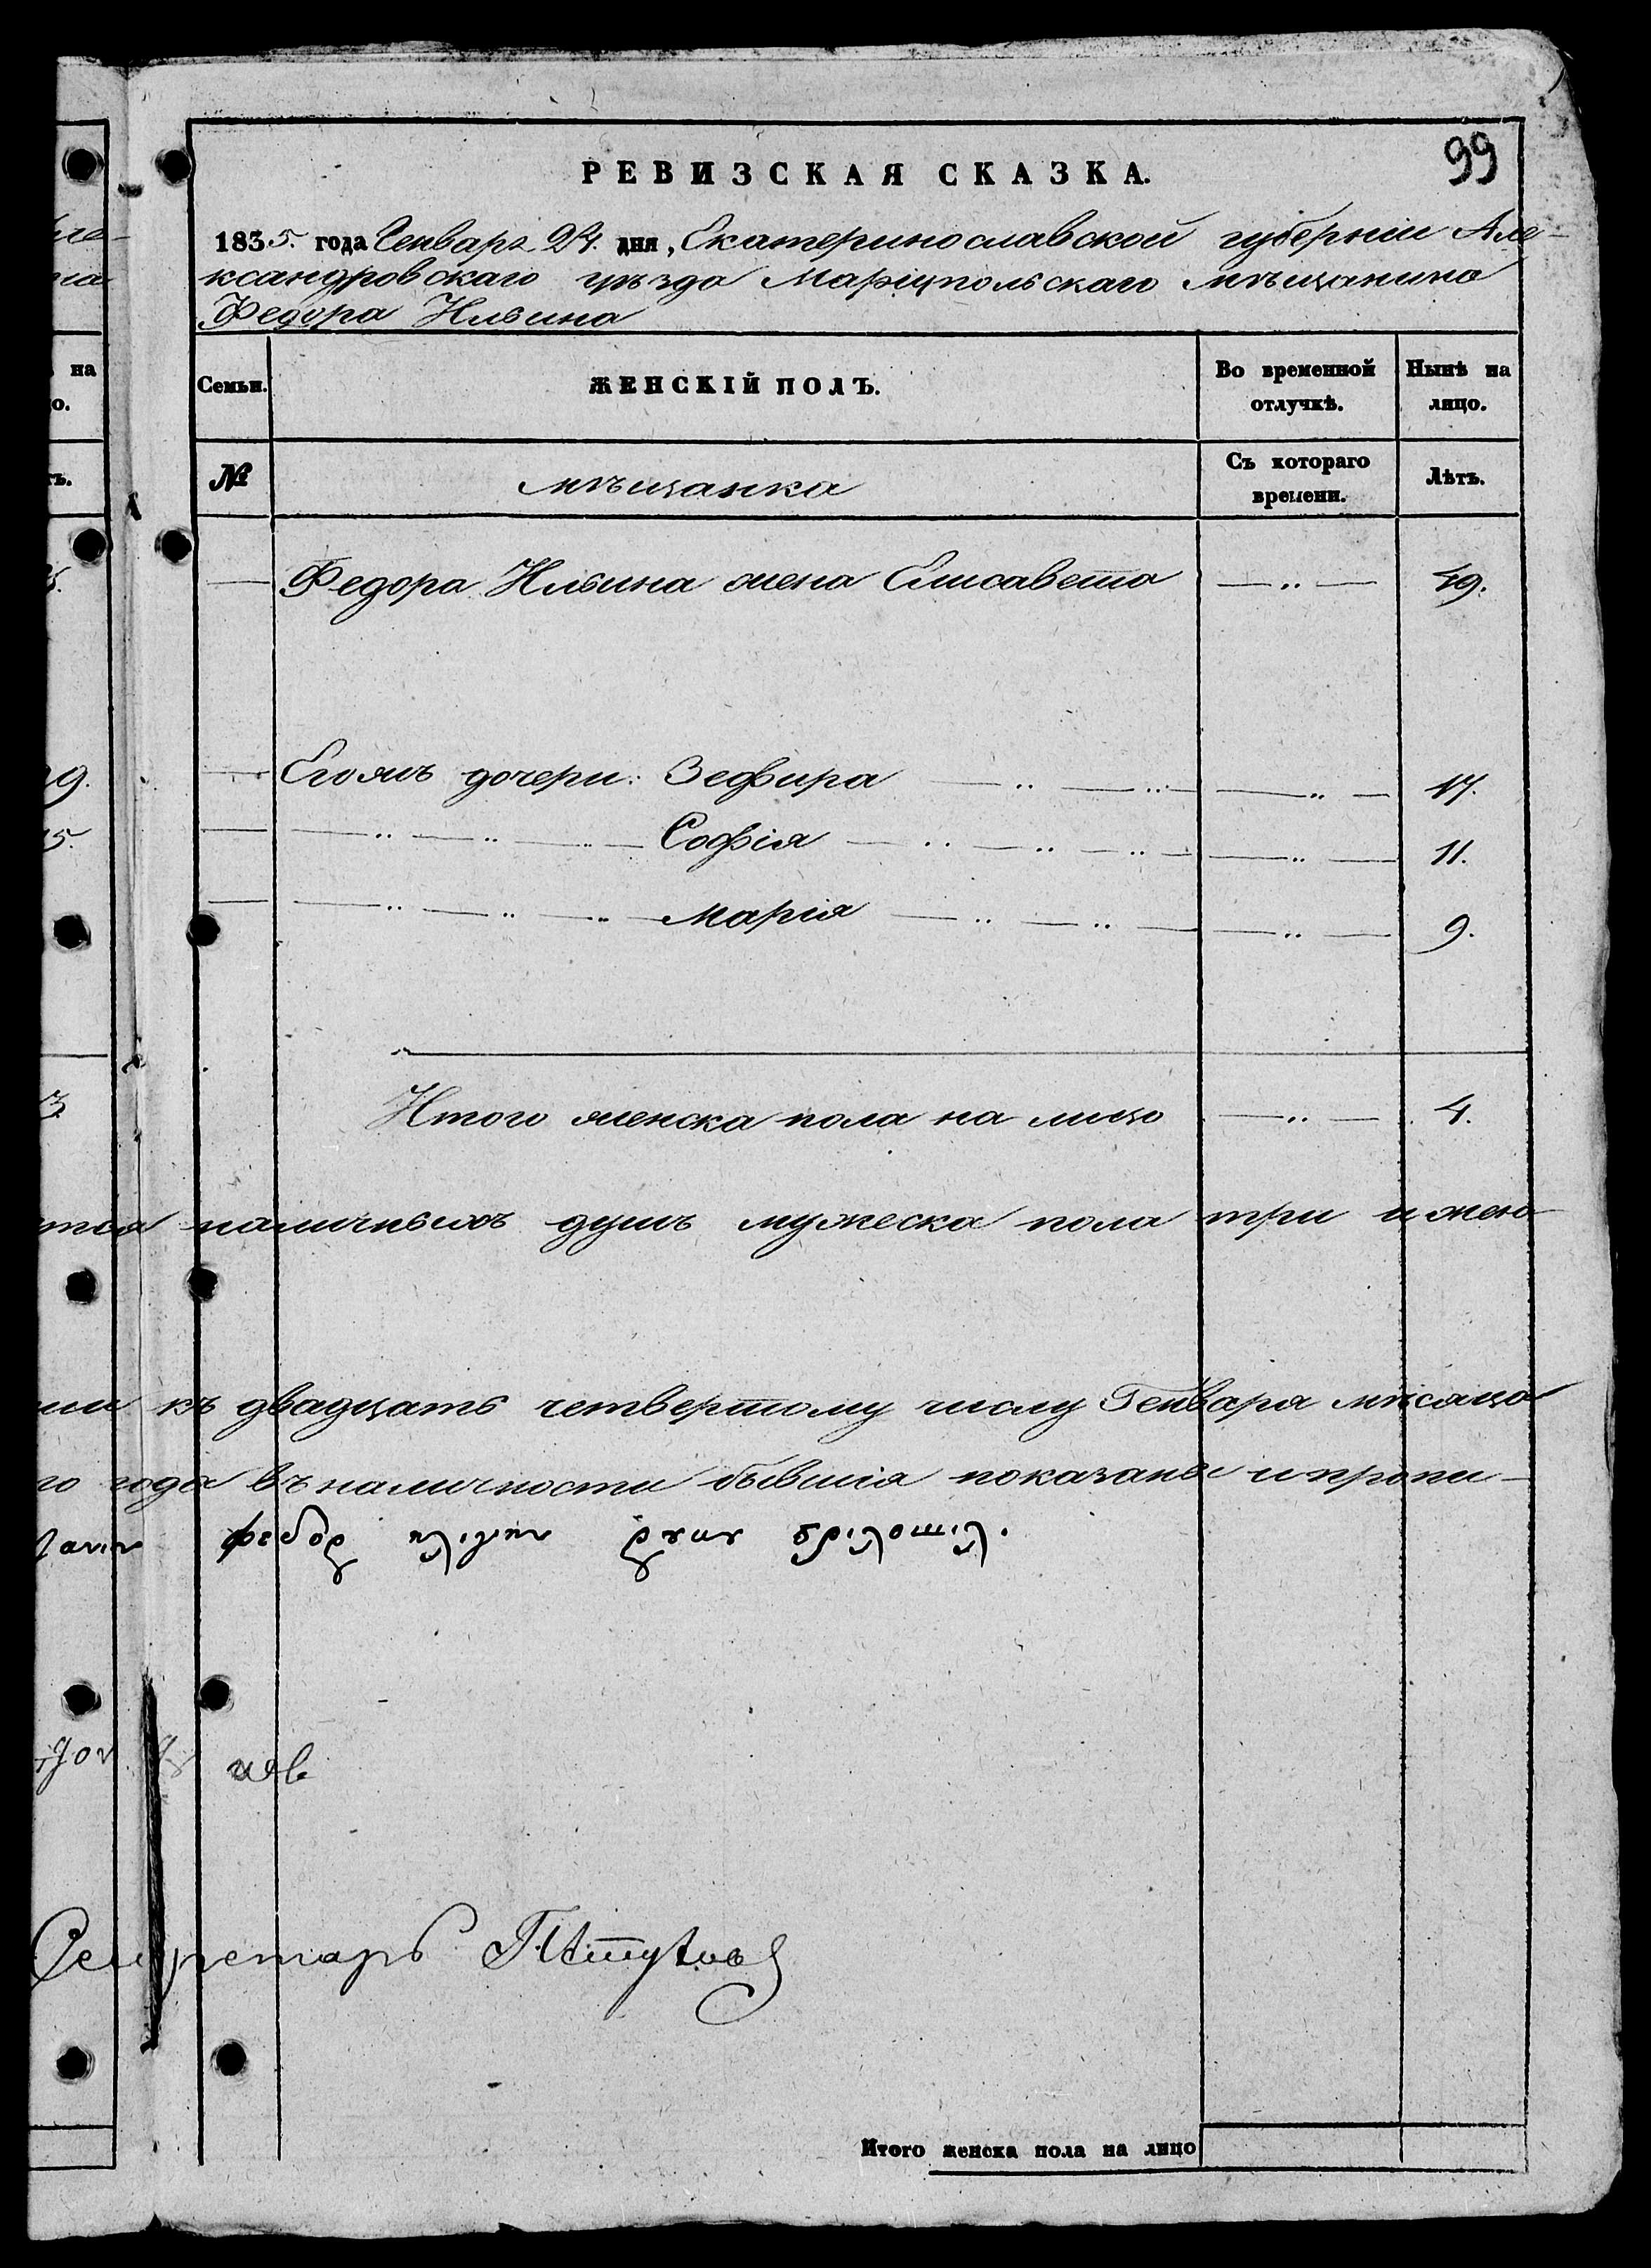 99
РЕВИЗСКАЯ СКАЗКА.
1835. года Генваря 24. дня, Екатеринославской губерніи Але-
ксандровскаго уѣзда Маріупольскаго мѣщанина
Федора Ильина
Семьи. ЖЕНСКІЙ ПОЛЪ. Во временной отлучкѣ. Нынѣ на лицо.
№ мѣщанка Съ котораго времени. Лѣтъ.
Федора Ильина жена Елисавета 49.
Его жъ дочери: Зефира 17.
Софія 11.
Марія 9.
Итого женска пола на лицо 4.
наличныхъ душъ мужеска пола три и жен-
къ двадцать четвертому числу Генваря мѣсяца
го года въ наличности бывшія показаны и пропи-
Секретарь
Итого женска пола на лицо